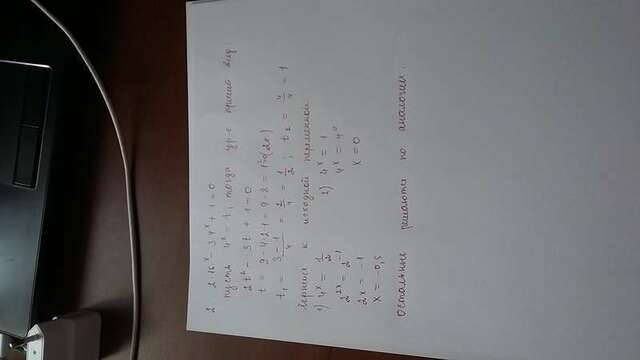 2 2·16ˣ - 3·4ˣ + 1 = 0
пусть 4ˣ = t, тогда ур-е примет вид
2t² - 3t + 1 = 0
t = 9 - 4·2·1 = 9 - 8 = 1 > 0 (2к.)
t₁ = (3-1)/4 = 2/4 = 1/2; t₂ = 4/4 = 1
Вернемся к исходной переменной
1) 4ˣ = 1/2 2) 4ˣ = 1
2²ˣ = 2⁻¹ 4ˣ = 4⁰
2x = -1 x = 0
x = -0,5
остальные решаются по аналогии.